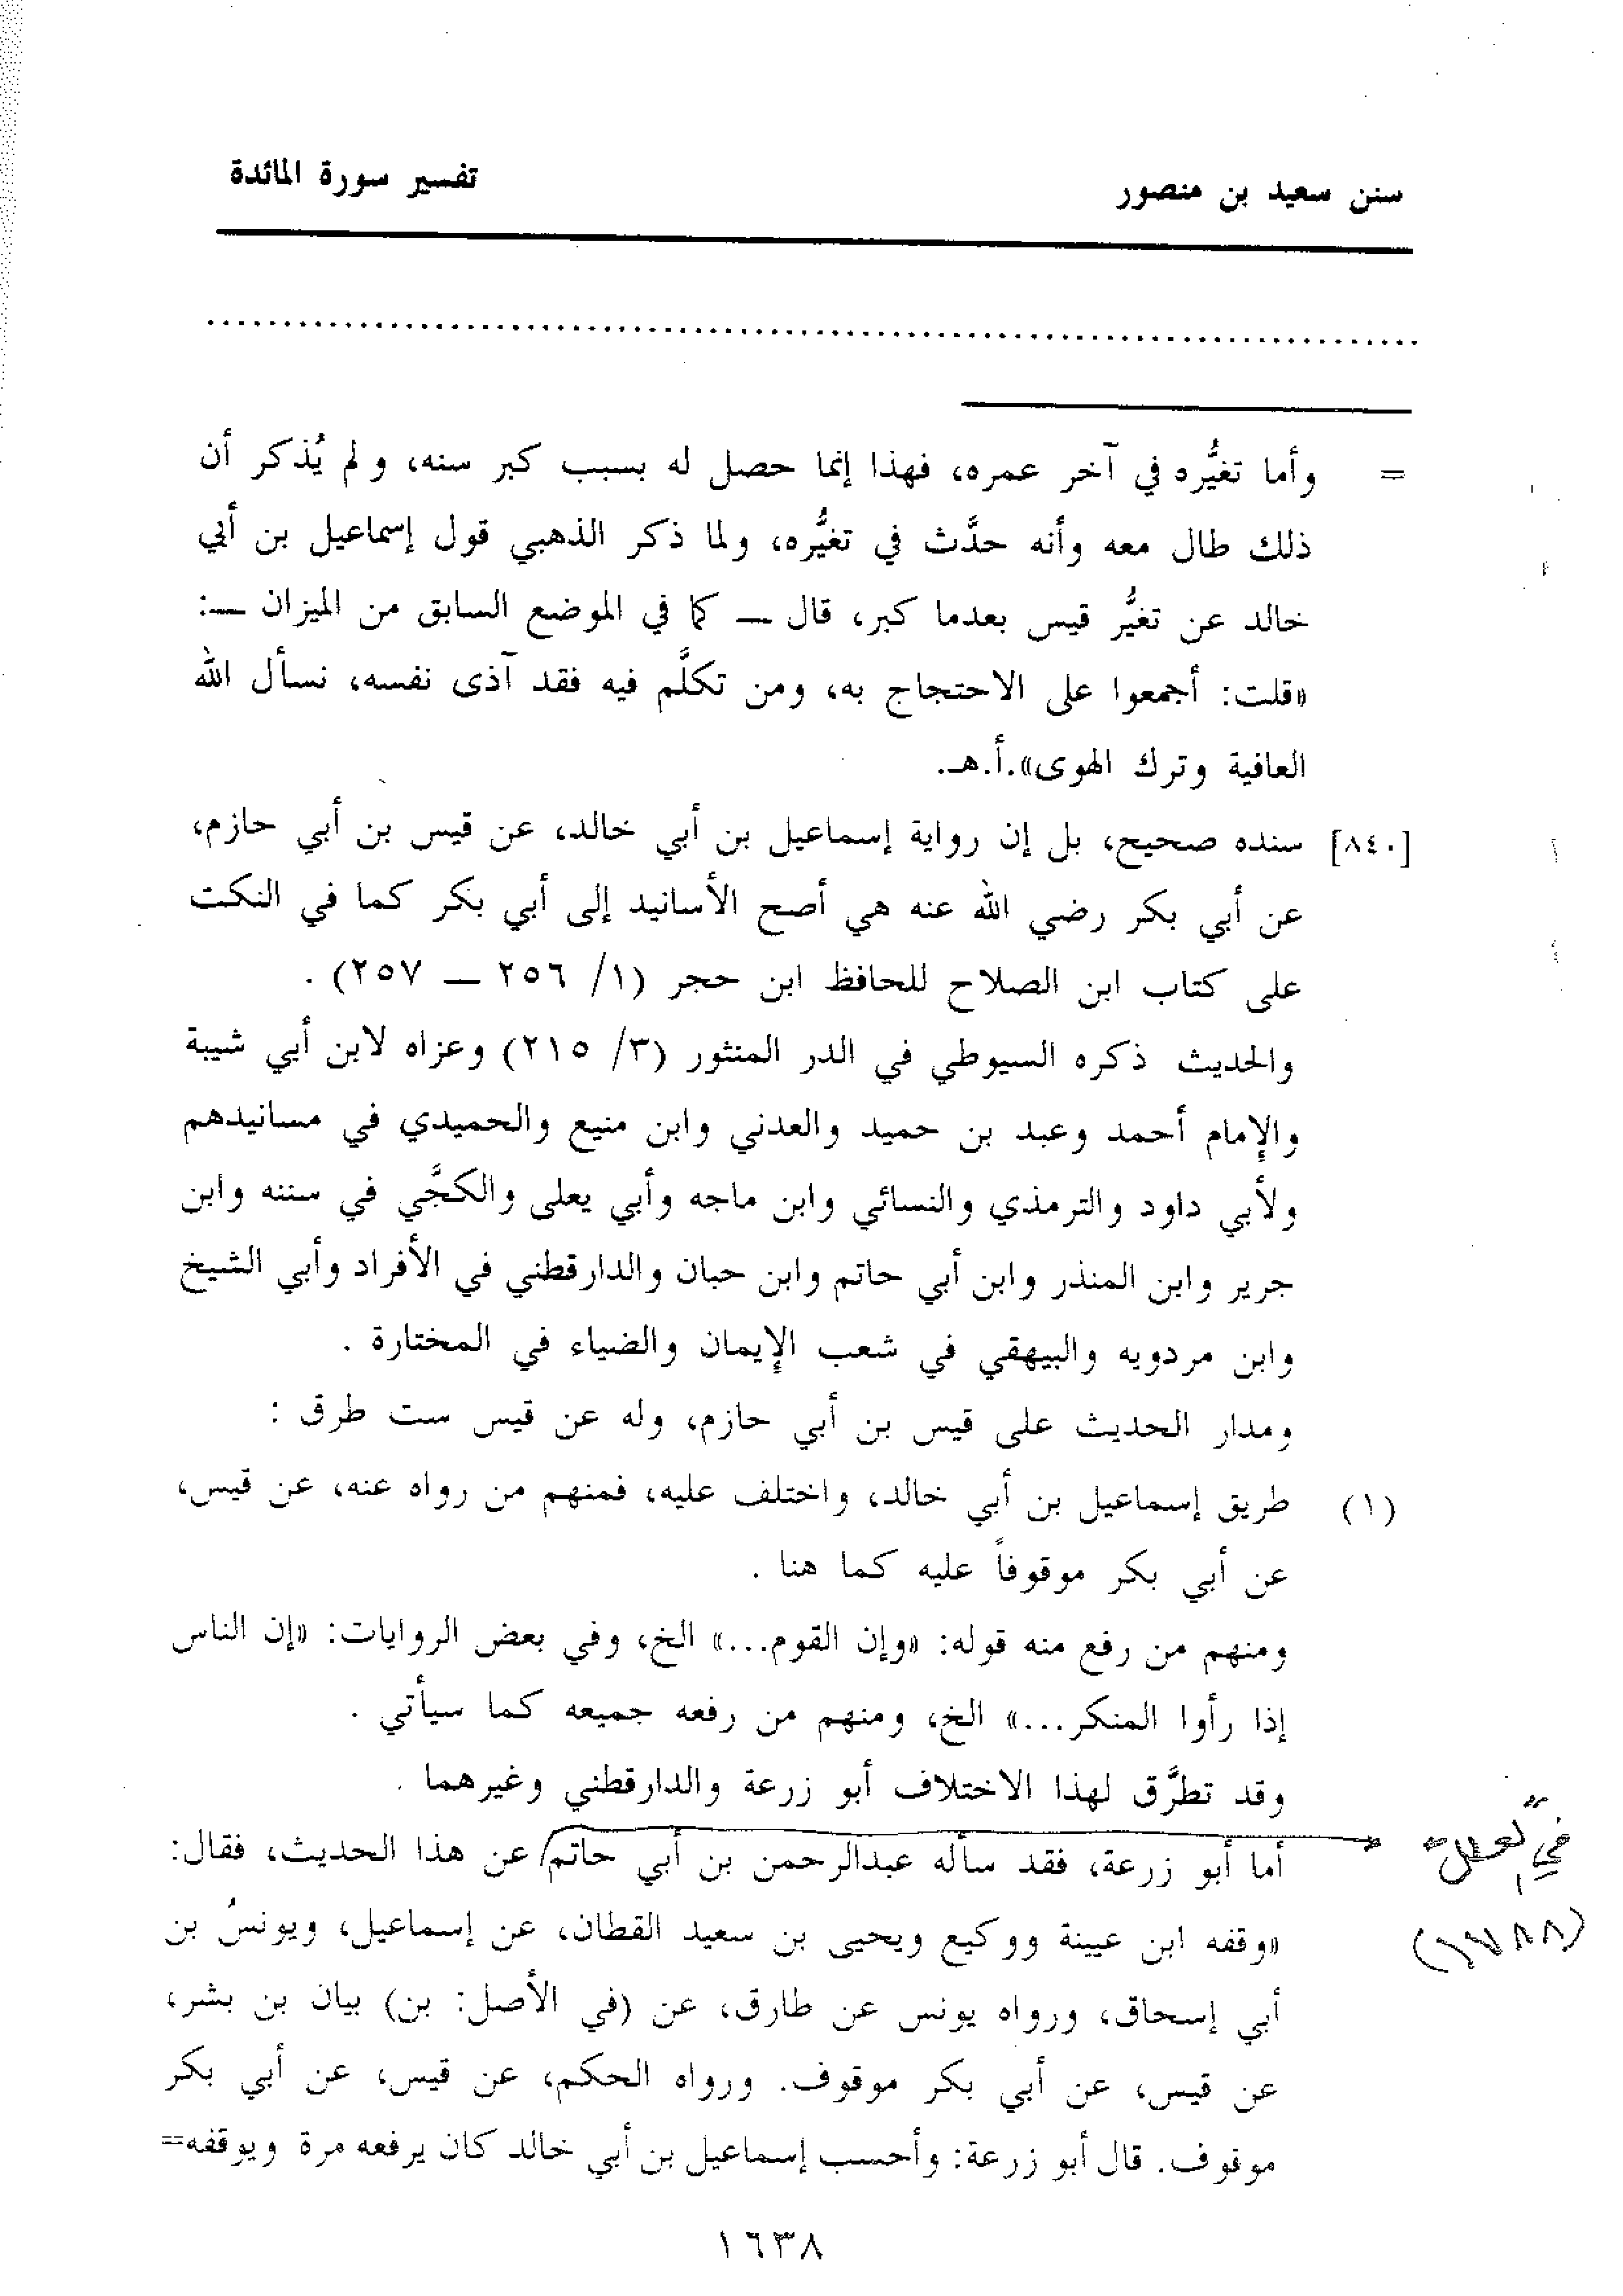 سنن سعيد بن منصور
تفسير سورة المائدة
= وأما تغيُّره في آخر عمره، فهذا إنما حصل له بسبب كبر سنه، ولم يُذكر أن
ذلك طال معه وأنه حدَّث في تغيُّره، ولما ذكر الذهبي قول إسماعيل بن أبي
خالد عن تغيُّر قيس بعدما كبر، قال ــ كما في الموضع السابق من الميزان ــ:
«قلت: أجمعوا على الاحتجاج به، ومن تكلَّم فيه فقد آذى نفسه، نسأل الله
العافية وترك الهوى».أ.هـ.
[٨٤٠] سنده صحيح، بل إن رواية إسماعيل بن أبي خالد، عن قيس بن أبي حازم،
عن أبي بكر رضي الله عنه هي أصح الأسانيد إلى أبي بكر كما في النكت
على كتاب ابن الصلاح للحافظ ابن حجر (١/ ٢٥٦ ــ ٢٥٧) .
والحديث ذكره السيوطي في الدر المنثور (٣/ ٢١٥) وعزاه لابن أبي شيبة
والإمام أحمد وعبد بن حميد والعدني وابن منيع والحميدي في مسانيدهم
ولأبي داود والترمذي والنسائي وابن ماجه وأبي يعلى والكجَّي في سننه وابن
جرير وابن المنذر وابن أبي حاتم وابن حبان والدارقطني في الأفراد وأبي الشيخ
وابن مردويه والبيهقي في شعب الإيمان والضياء في المختارة .
ومدار الحديث على قيس بن أبي حازم، وله عن قيس ست طرق :
(١) طريق إسماعيل بن أبي خالد، واختلف عليه، فمنهم من رواه عنه، عن قيس،
عن أبي بكر موقوفاً عليه كما هنا .
ومنهم من رفع منه قوله: «وإن القوم...» الخ، وفي بعض الروايات: «إن الناس
إذا رأوا المنكر...» الخ، ومنهم من رفعه جميعه كما سيأتي .
وقد تطرَّق لهذا الاختلاف أبو زرعة والدارقطني وغيرهما .
أما أبو زرعة، فقد سأله عبدالرحمن بن أبي حاتم عن هذا الحديث، فقال:
في العلل
«وقفه ابن عيينة ووكيع ويحيى بن سعيد القطان، عن إسماعيل، ويونسُ بن
(١٧٨٨)
أبي إسحاق، ورواه يونس عن طارق، عن (في الأصل: بن) بيان بن بشر،
عن قيس، عن أبي بكر موقوف. ورواه الحكم، عن قيس، عن أبي بكر
موقوف. قال أبو زرعة: وأحسب إسماعيل بن أبي خالد كان يرفعه مرة ويوقفه=
١٦٣٨